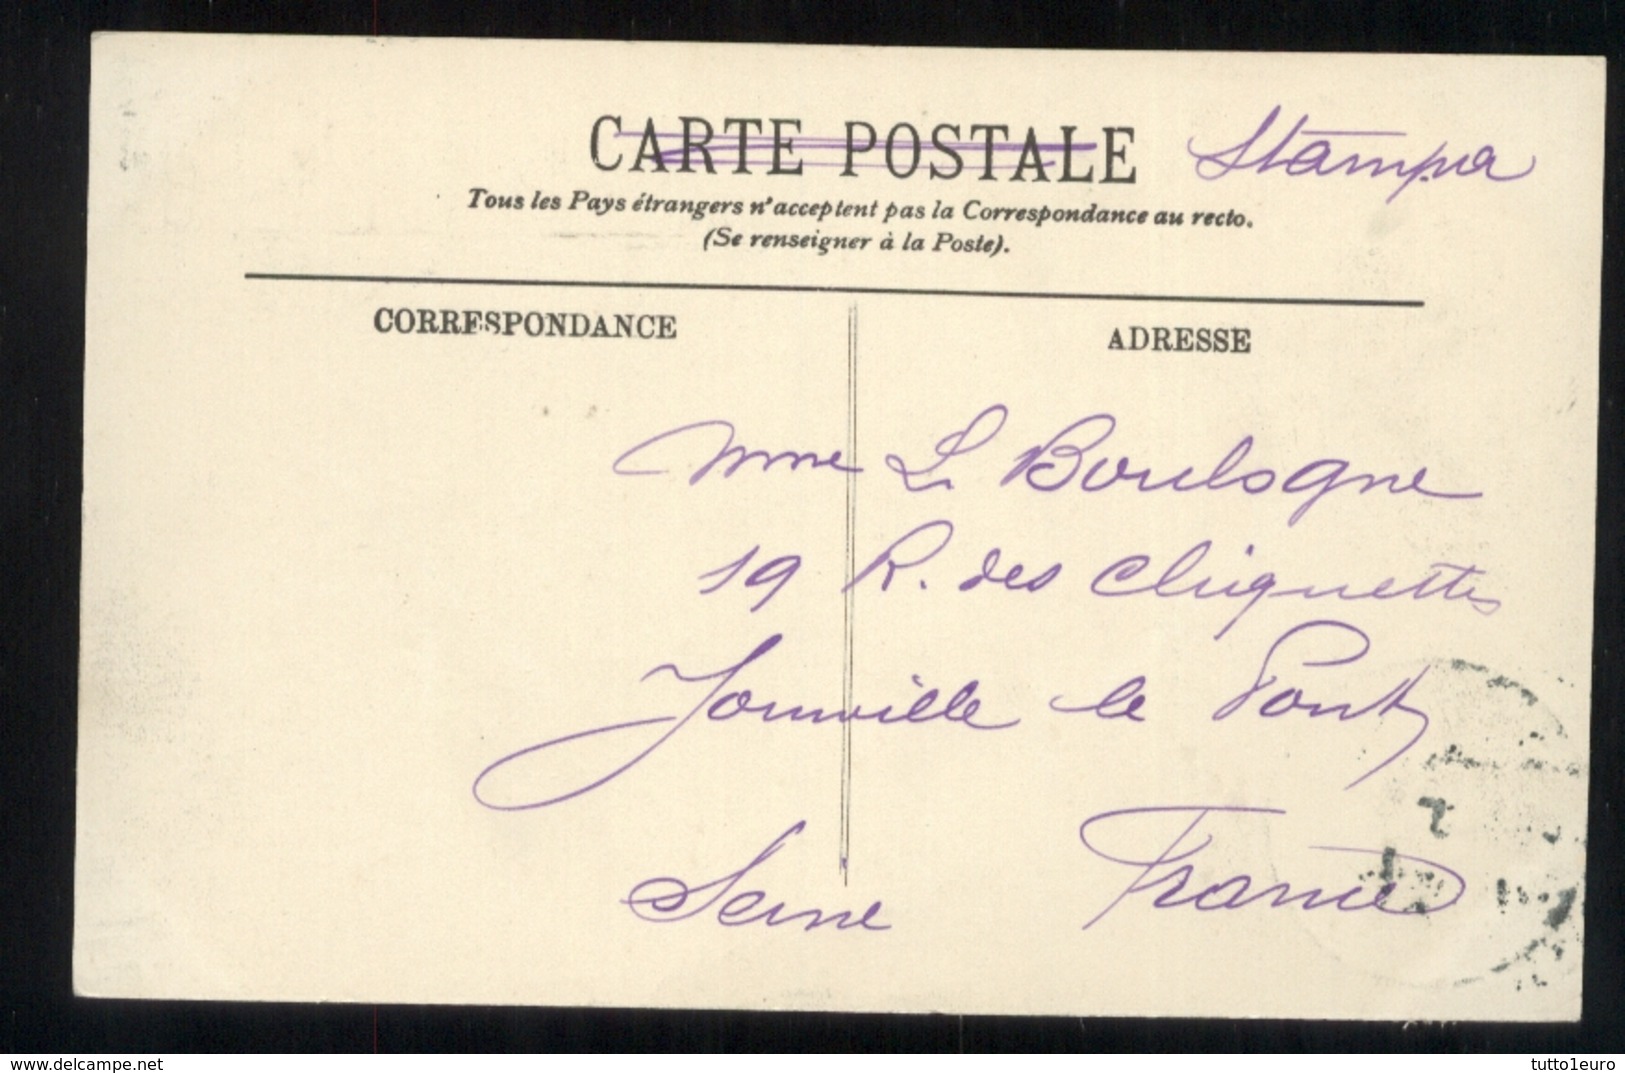 CARTE POSTALE Stampa
Tous les Pays étrangers n'acceptent pas la Correspondance au recto.
(Se renseigner à la Poste).
CORRESPONDANCE ADRESSE
Mme L Boulogne
19 R. des Cliquettes
Joinville le Pont
Seine France
delcampe.net tutto1euro